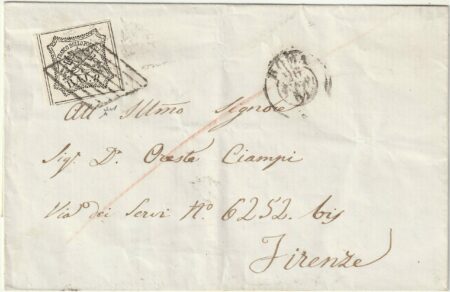 ROMA
All' Illmo Signore
Sig. Dr. Oreste Ciampi
Via dei Servi No. 6252. bis
Firenze